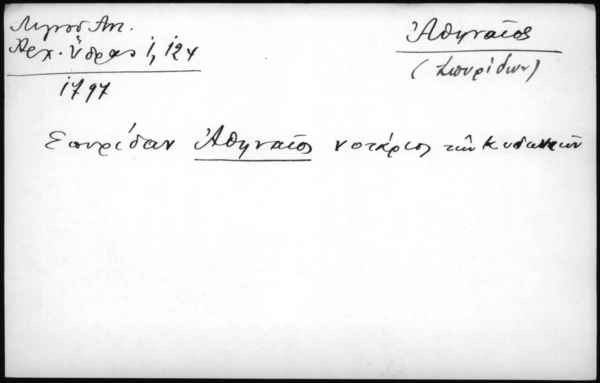 Λιγνοῦ Αντ.
Αρχ. Ὕδρας 1, 124
1797
Ἀθηναῖος
(Σπυρίδων)
Σπυρίδων Ἀθηναῖος νοτάριος τῶν Κυδωνιῶν